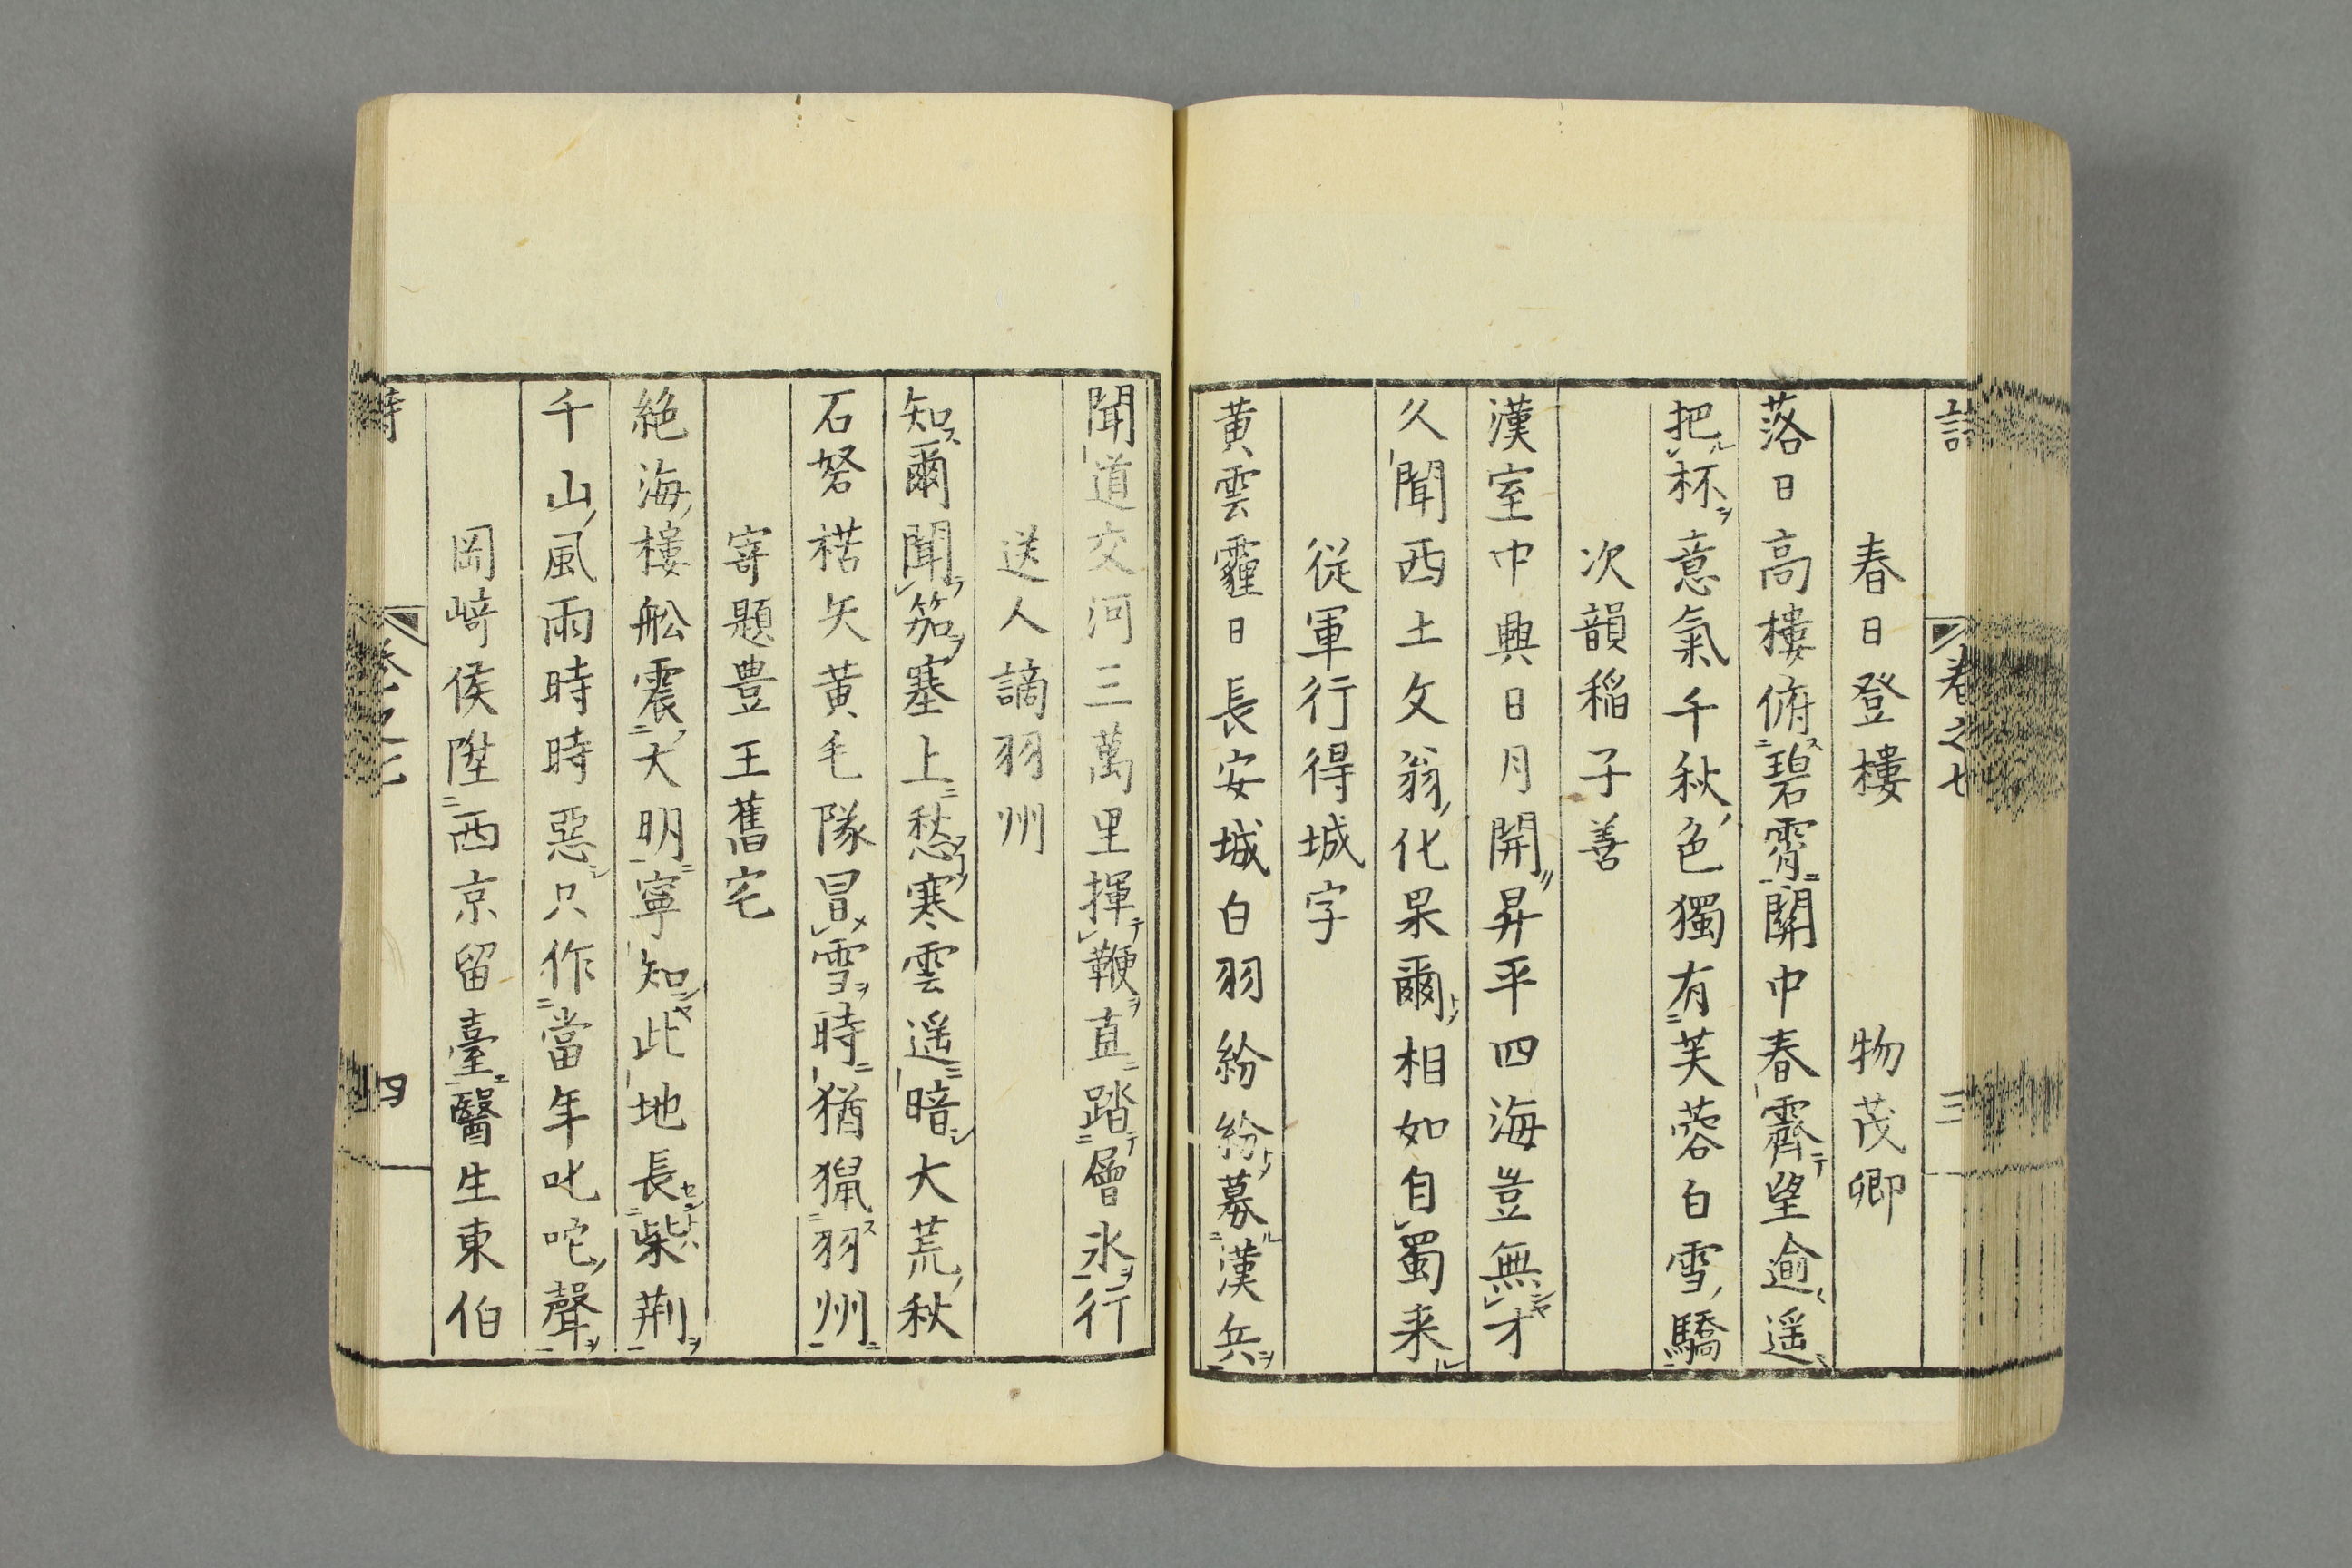 卷之七 三
春日登樓 物茂卿
落日高樓俯碧霄關中春霽望逾遥
把杯意氣千秋色獨有芙蓉白雪驕
次韻稲子善
漢室中興日月開昇平四海豈無才
久聞西土文翁化果爾相如自蜀来
從軍行得城字
黄雲霾日長安城白羽紛紛募漢兵
聞道交河三萬里揮鞭直踏層氷行
送人謫羽州
知爾聞笳塞上愁寒雲遥暗大荒秋
石砮楛矢黄毛隊冒雪時猶猟羽州
寄題豊王舊宅
絶海樓舩震大明寧知此地長柴荆
千山風雨時時惡只作當年叱咤聲
岡﨑侯陞西京留臺醫生東伯
四